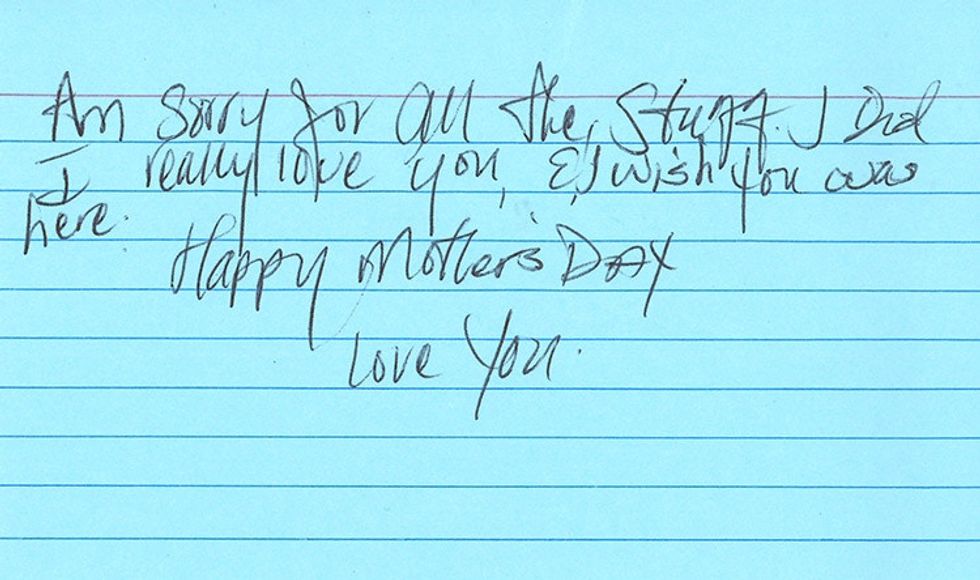 Am Sorry for all the, Stuff. I Did
I really love you, & I wish you was
here.
Happy Mother's Day
love You.